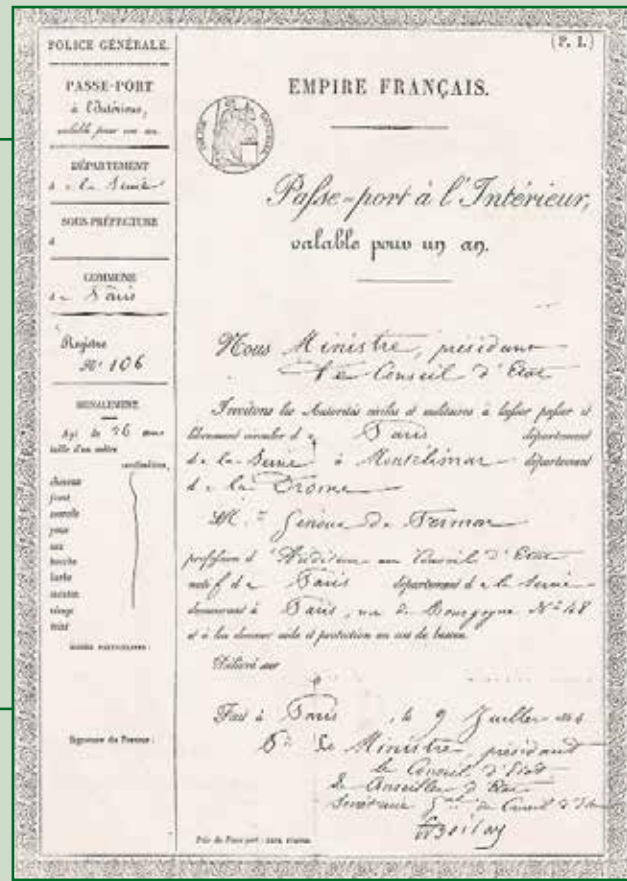 POLICE GÉNÉRALE.
PASSE-PORT
à l'Intérieur,
valable pour un an.
DÉPARTEMENT
de la Seine
SOUS-PRÉFECTURE
d
COMMUNE
de Paris
Registre
N° 106
SIGNALEMENT
Agé de 26 ans
taille d'un mètre
centimètres,
cheveux
front
sourcils
yeux
nez
bouche
barbe
menton
visage
teint
SIGNES PARTICULIERS :
Signature du Porteur :
(P. I.)
EMPIRE FRANÇAIS.
Passe-port à l'Intérieur,
valable pour un an.
Nous Ministre, présidant
le Conseil d'Etat
Invitons les Autorités civiles et militaires à laisser passer et
librement circuler de Paris département
de la Seine à Montelimar département
de la Drome
M. de
profession d'Auditeur au Conseil d'Etat
natif de Paris département de la Seine
demeurant à Paris, rue de Bourgogne N° 48
et à lui donner aide et protection en cas de besoin.
Délivré sur
Fait à Paris, le 9 Juillet
Le Ministre, présidant
le Conseil d'Etat
le Conseiller d'Etat
Secrétaire Gal du Conseil d'Etat
Prix du Passe-port : DEUX FRANCS.